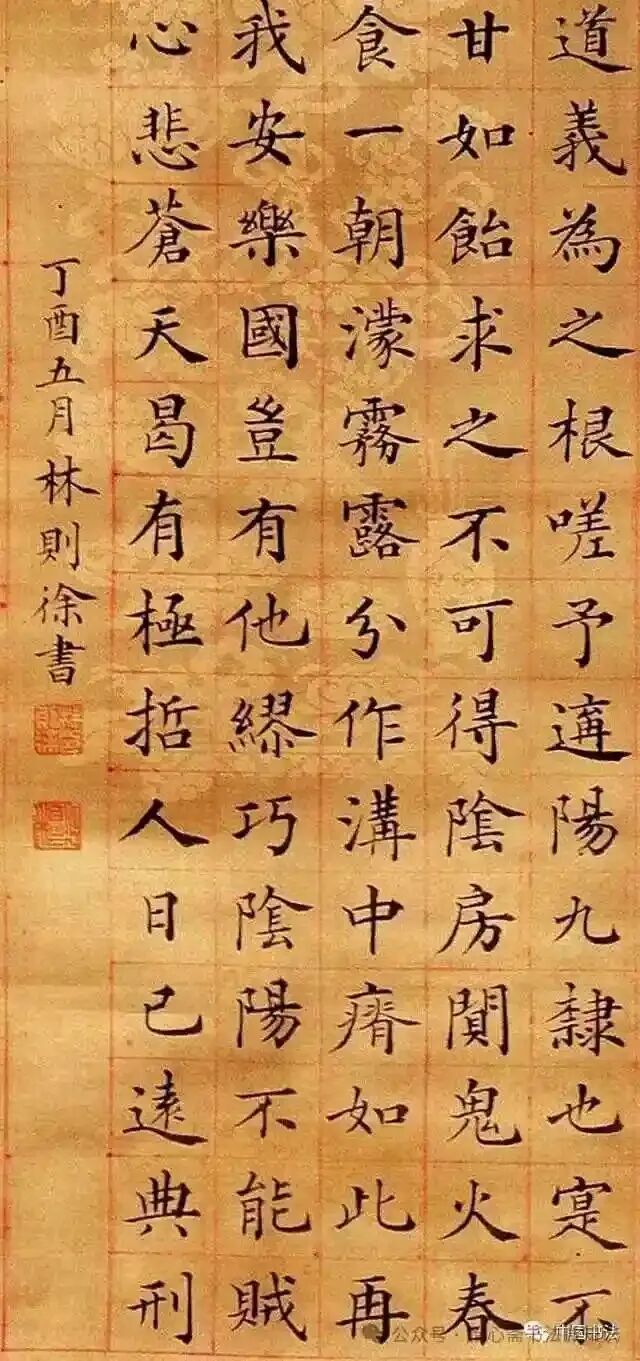 道義為之根嗟予遘陽九隸也寔不
甘如飴求之不可得陰房閴鬼火春
食一朝濛霧露分作溝中瘠如此再
我安樂國豈有他繆巧陰陽不能賊
心悲蒼天曷有極哲人日已遠典刑
丁酉五月林則徐書
公众号
中国书法